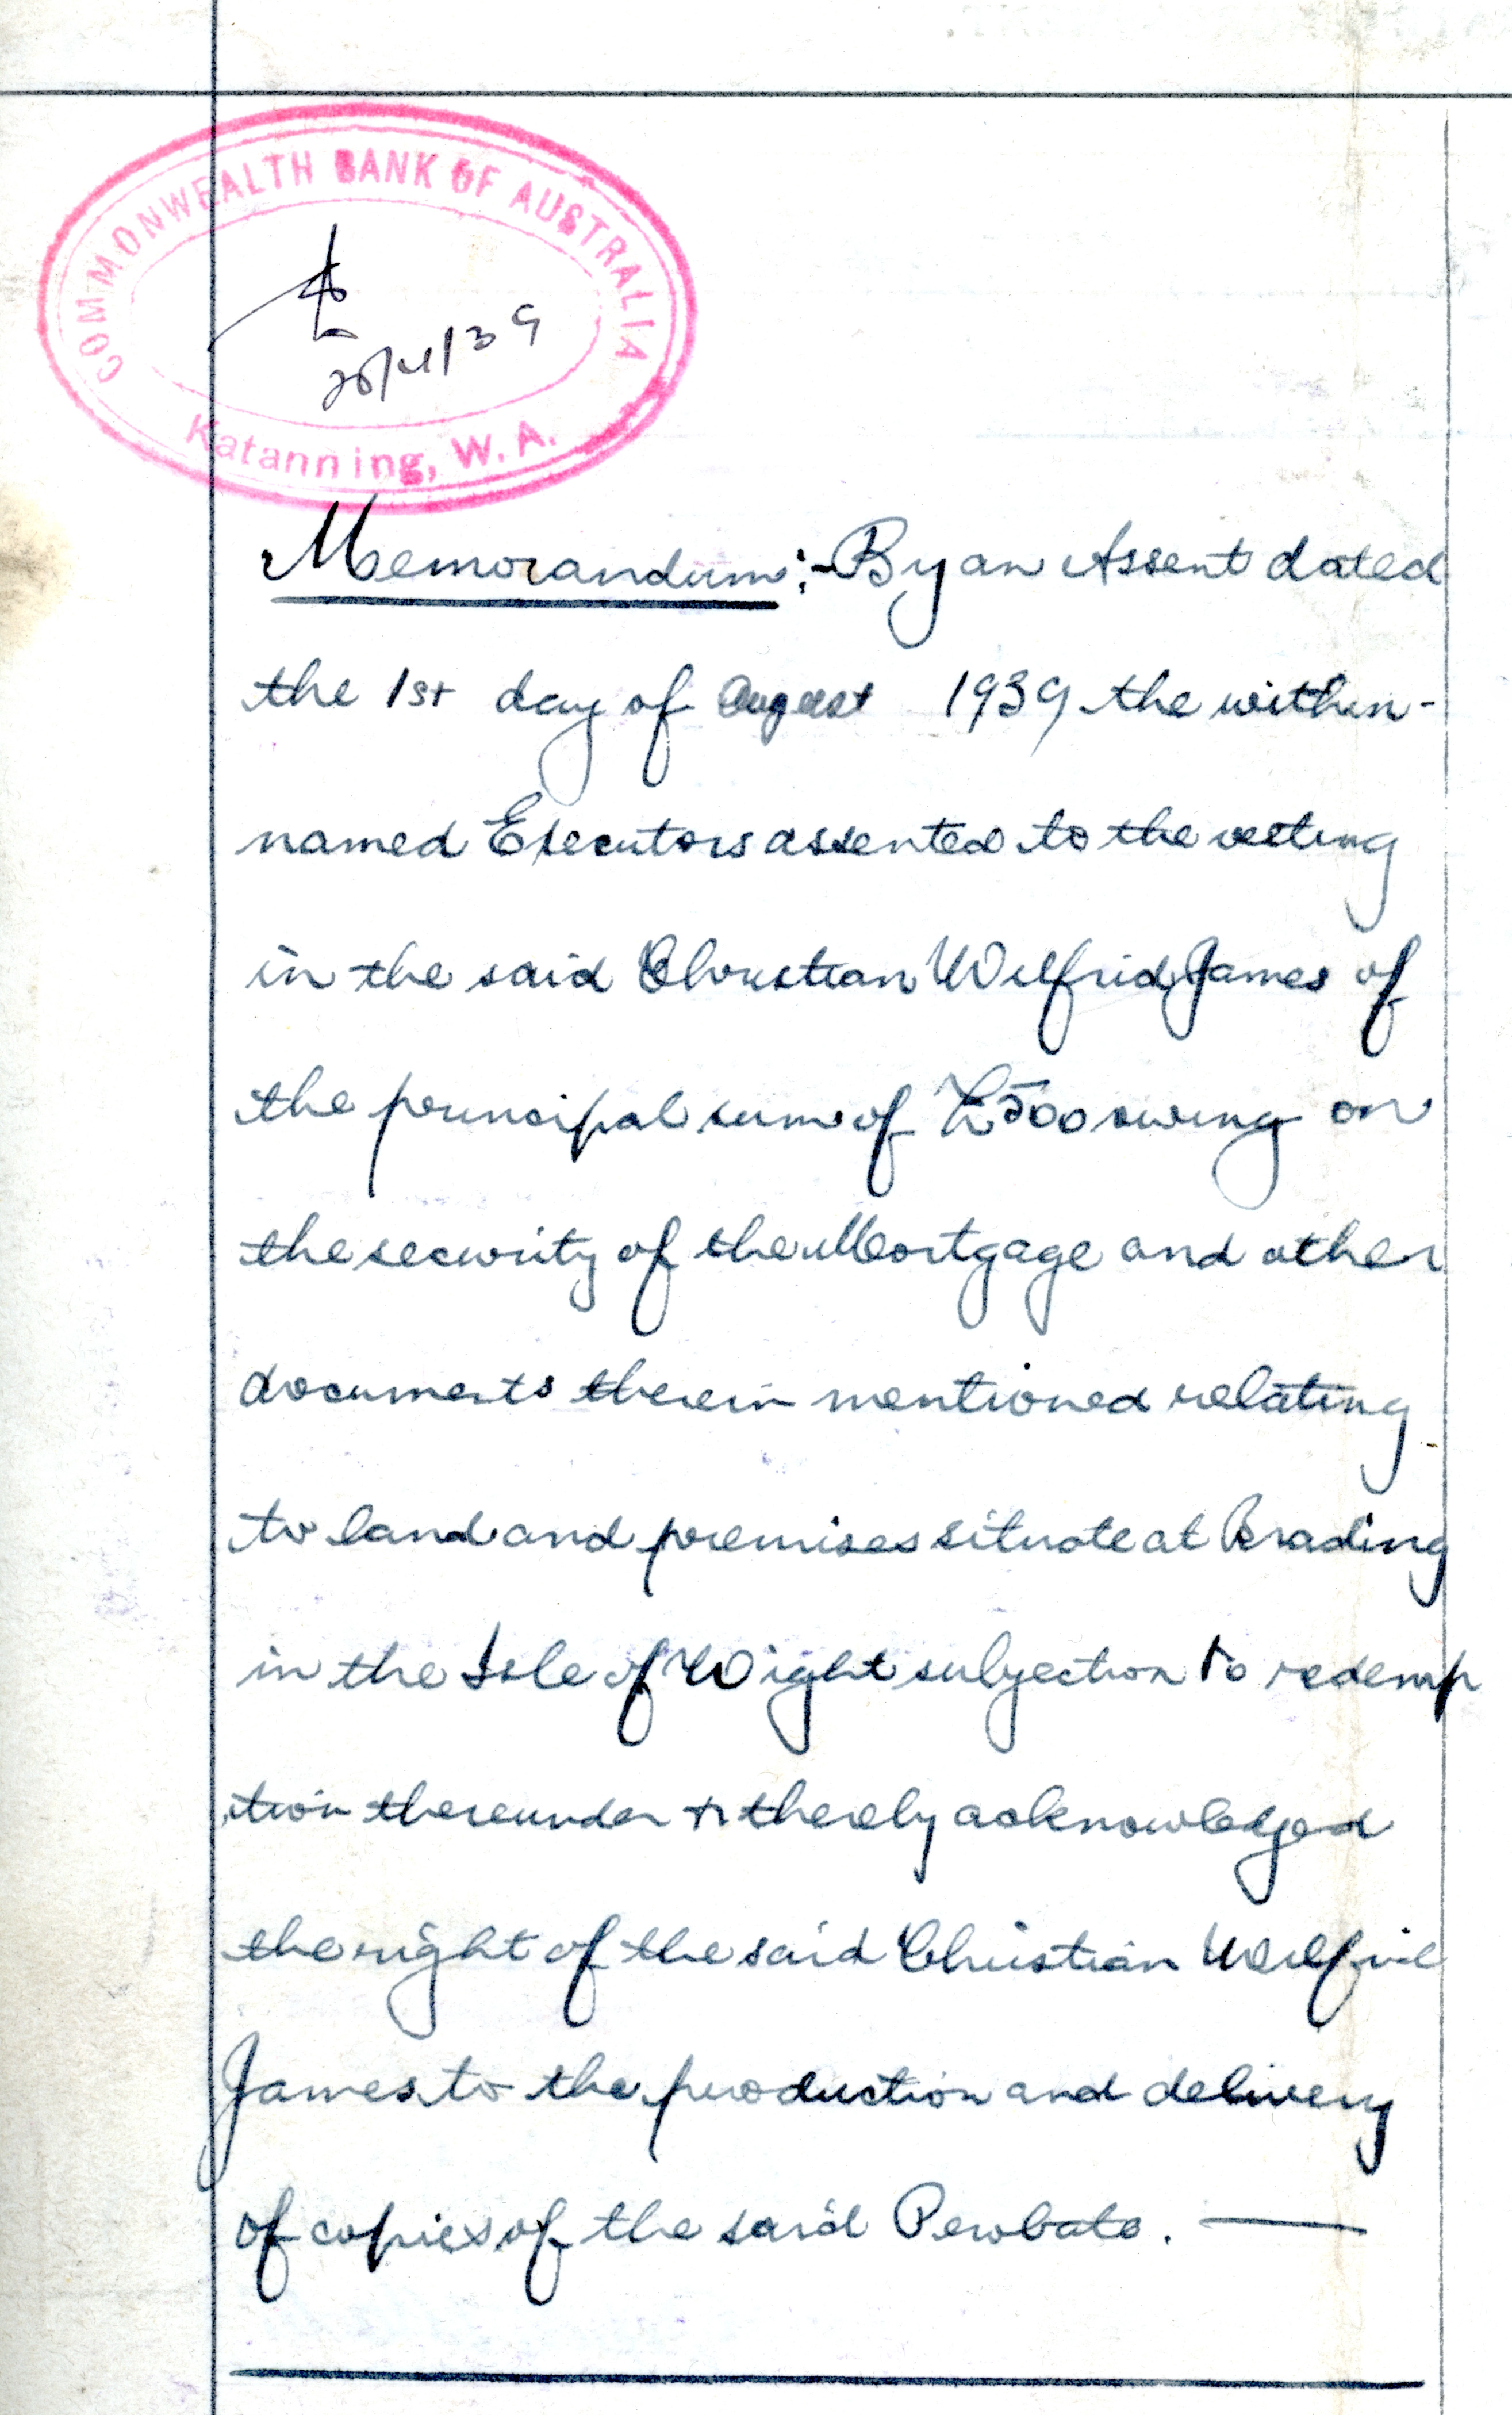 COMMONWEALTH BANK OF AUSTRALIA
/39
Katanning, W. A.
Memorandum:- By an Assent dated
the 1st day of August 1939 the within-
named Executors assented to the vesting
in the said Christian Wilfrid James of
the principal sum of £500 owing on
the security of the Mortgage and other
documents therein mentioned relating
to land and premises situate at Brading
in the Isle of Wight subjection to redemp
tion thereunder & thereby acknowledged
the right of the said Christian Wilfrid
James to the production and delivery
of copies of the said Probate.